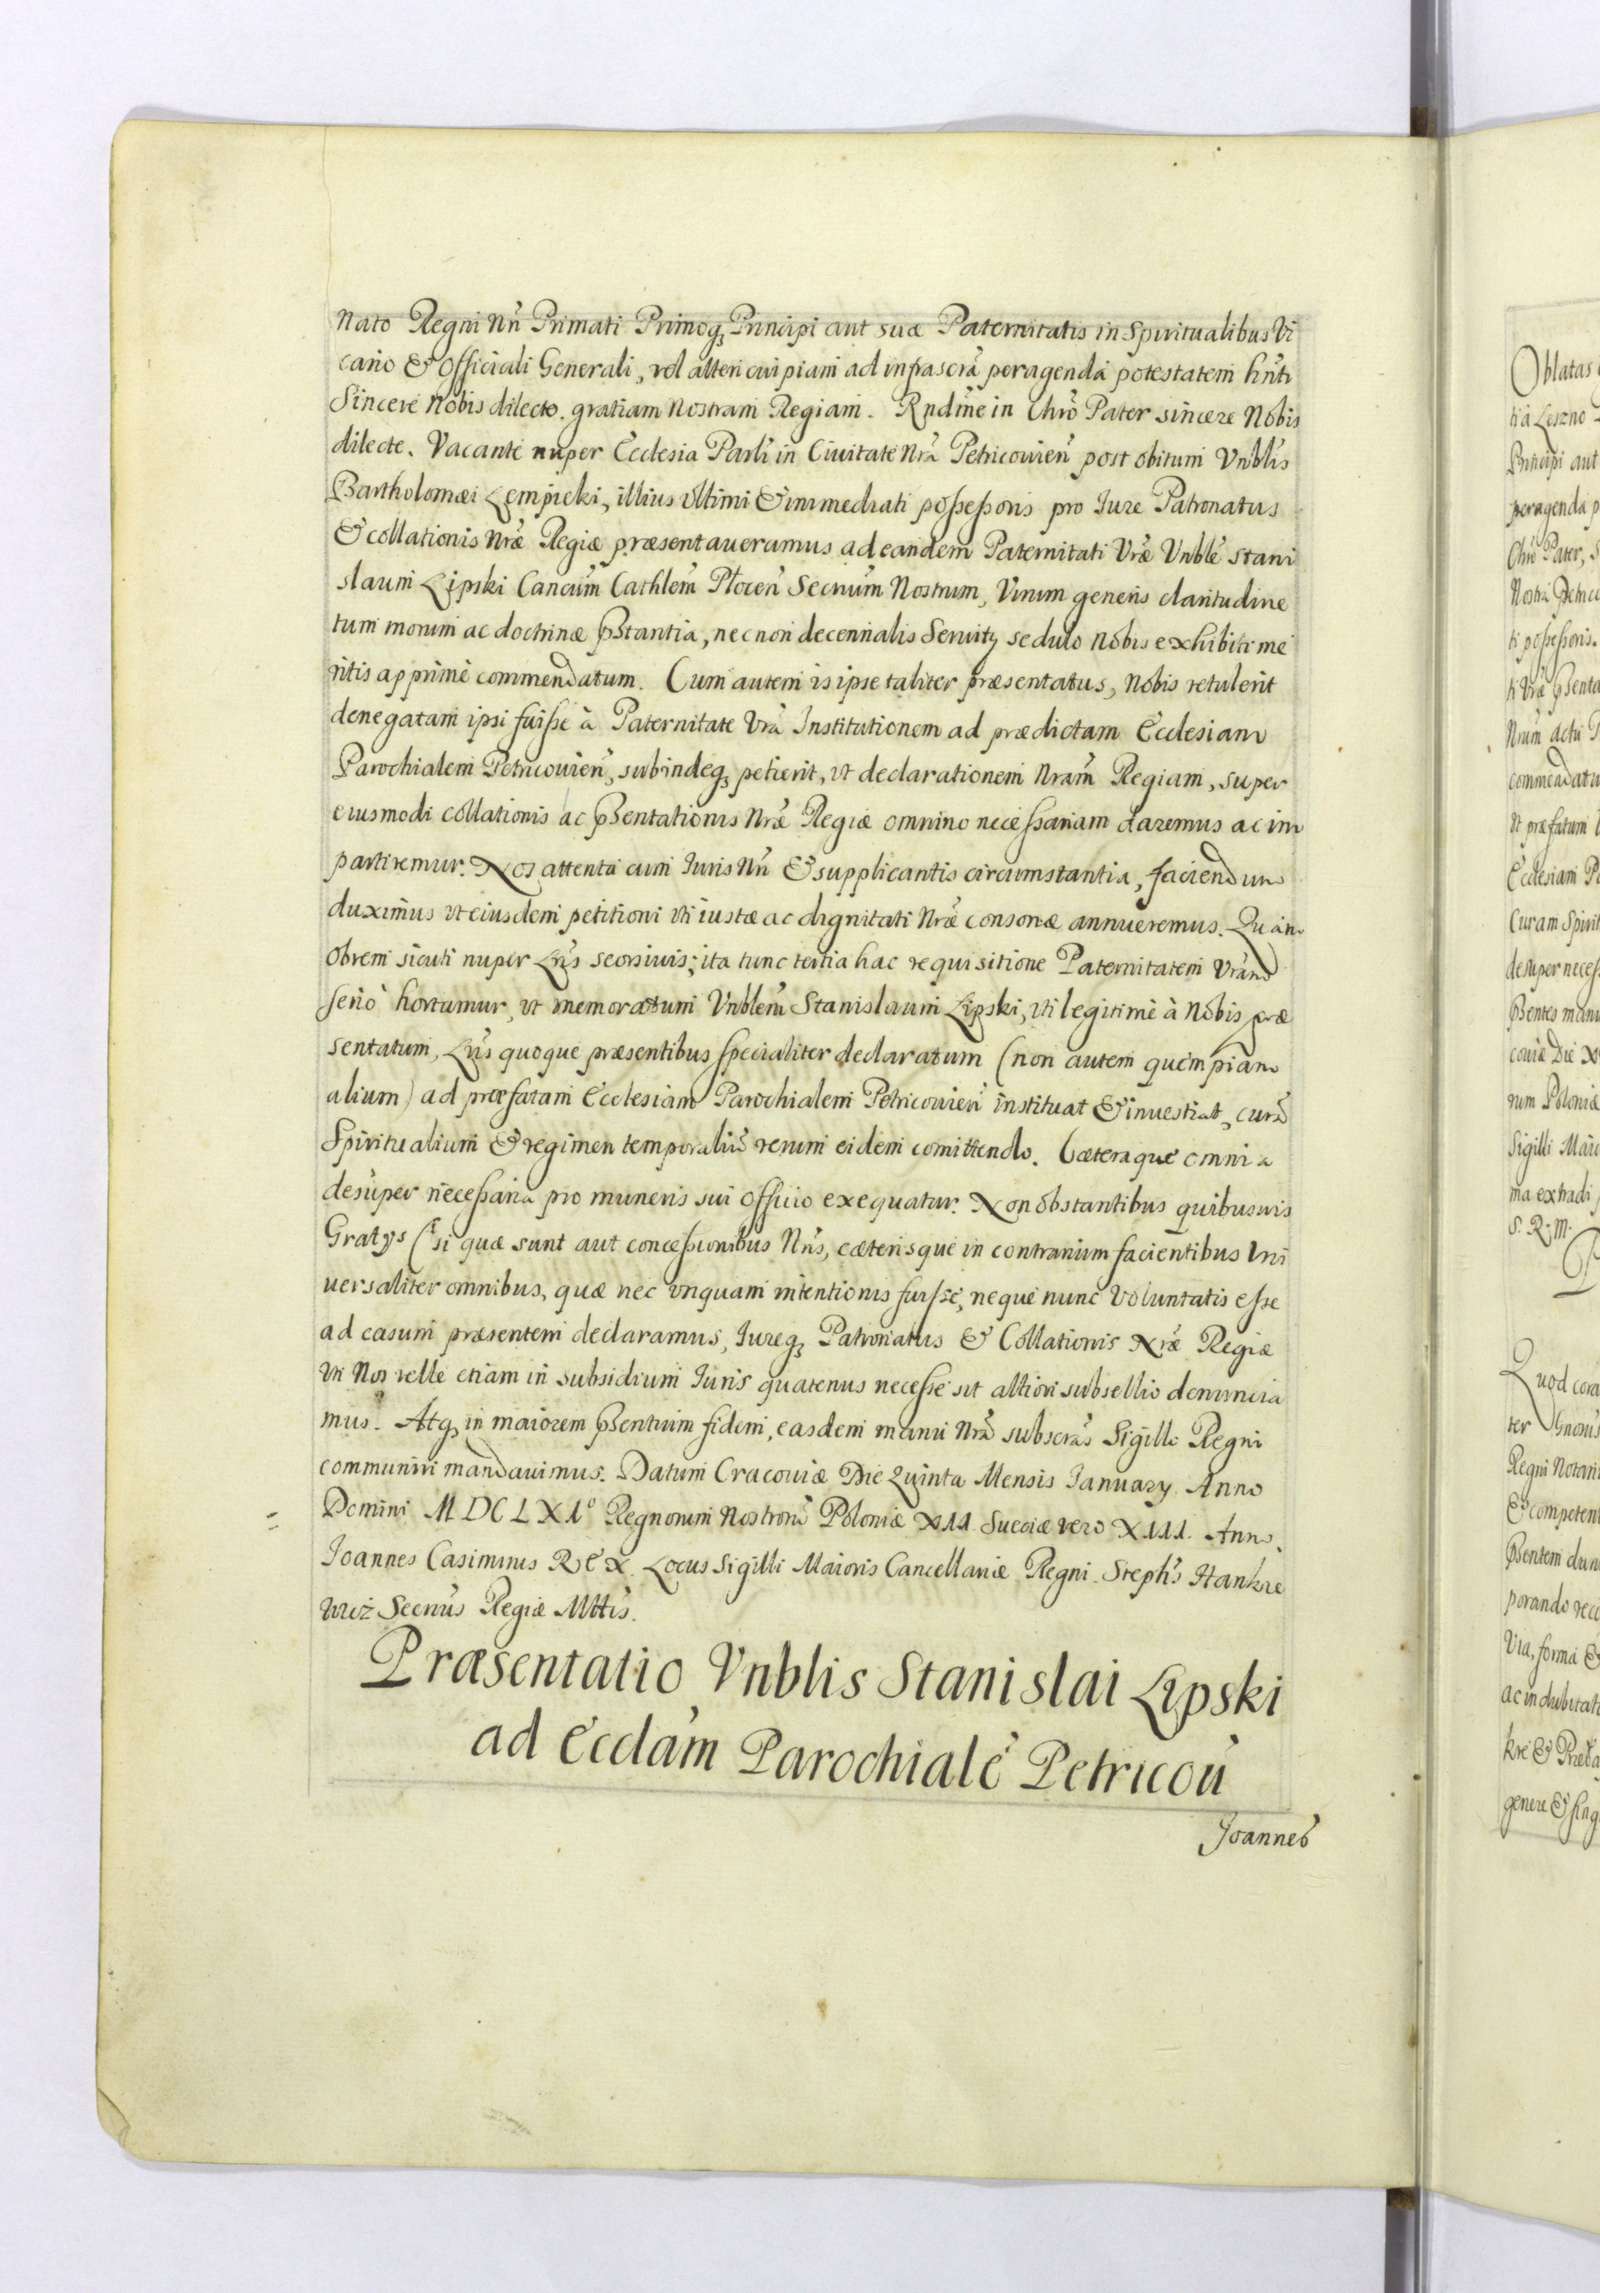 nato Regni Nri Primati Primoq₃ Principi aut suæ Paternitatis in Spiritualibus Vi
cario & Officiali Generali, vel alteri cuipiam ad infrascra peragenda potestatem hnti
Sincere Nobis dilecto. gratiam Nostram Regiam. Rndme in Chro Pater sincere Nobis
dilecte. Vacante nuper Ecclesia Parli in Ciuitate Nra Petricouien post obitum Vnblis
Bartholomæi Lempicki, illius vltimi & immediati possessoris pro Iure Patronatus
& collationis Nræ Regiæ præsentaueramus ad eandem Paternitati Vræ Vnble Stani
slaum Lipski Cancum Cathlem Plocen Secrium Nostrum, Virum generis claritudine
tum morum ac doctrinæ pstantia, nec non decennalis Seruitÿ sedulo Nobis exhibiti me
ritis apprime commendatum. Cum autem is ipse taliter præsentatus, Nobis retulerit
denegatam ipsi fuisse à Paternitate Vra Institutionem ad prædictam Ecclesiam
Parochialem Petricouien, subindeq₃ petierit, vt declarationem Nram Regiam, super
eiusmodi collationis ac psentationis Nræ Regiæ omnino necessariam daremus ac im
partiremur. Nos attenta cum Iuris Nri & supplicantis circumstantia, faciendum
duximus vt eiusdem petitioni vti iustæ ac dignitati Nræ consonæ annueremus. Quam
obrem sicuti nuper Lris seorsiuis; ita tunc tertia hac requisitione Paternitatem Vram
serio hortamur, vt memoratum Vnblem Stanislaum Lipski, vti legitimè à Nobis præ
sentatum, Lris quoque præsentibus specialiter declaratum (non autem quempiam
alium) ad præfatam Ecclesiam Parochialem Petricouien instituat & inuestiat, curã
Spiritualium & regimen temporaliũ rerum eidem comittendo. Cæteraque omnia
desuper necessaria pro muneris sui officio exequatur. Non obstantibus quibusuis
Gratÿs (si quæ sunt aut concessionibus Nris, cæterisque in contrarium facientibus vni
uersaliter omnibus, quæ nec vnquam intentionis fuisse, neque nunc voluntatis esse
ad casum præsentem declaramus, Iureq₃ Patronatus & Collationis Nræ Regiæ
vti Nos velle etiam in subsidium Iuris quatenus necesse sit altiori subsellio denuncia
mus. Atq₃ in maiorem psentium fidem, easdem manu Nra subscras Sigillo Regni
communiri mandauimus. Datum Cracouiæ Die Quinta Mensis Ianuarÿ Anno
Domini MDCLXIº Regnorum Nostrorũ Poloniæ XII Sueciæ vero XIII. Anno.
Ioannes Casimirus REX. Locus Sigilli Maioris Cancellariæ Regni. Stephs Hankie
wicz Secrius Regiæ Mttis.
Præsentatio Vnblis Stanislai Lipski
ad Ecclam Parochialẽ Petricou
Joannes
Oblatas
ti à Leszno
Principi aut
peragenda p
Chro Pater, S
Nostra Petrico
ti possessoris.
ti Vræ psenta
Nrum actu P
commendatu
vt præfatum
Ecclesiam Pa
Curam Spirit
desuper necess
psentes manu
couiæ Die X
rum Poloniæ
Sigilli Maio
ma extradi
S. R. M.
Quod cora
ter Gnosus
Regni Notari
& competen
psentem dun
porando reco
via, forma &
ac indubitat
kre & Præta
genere & sing